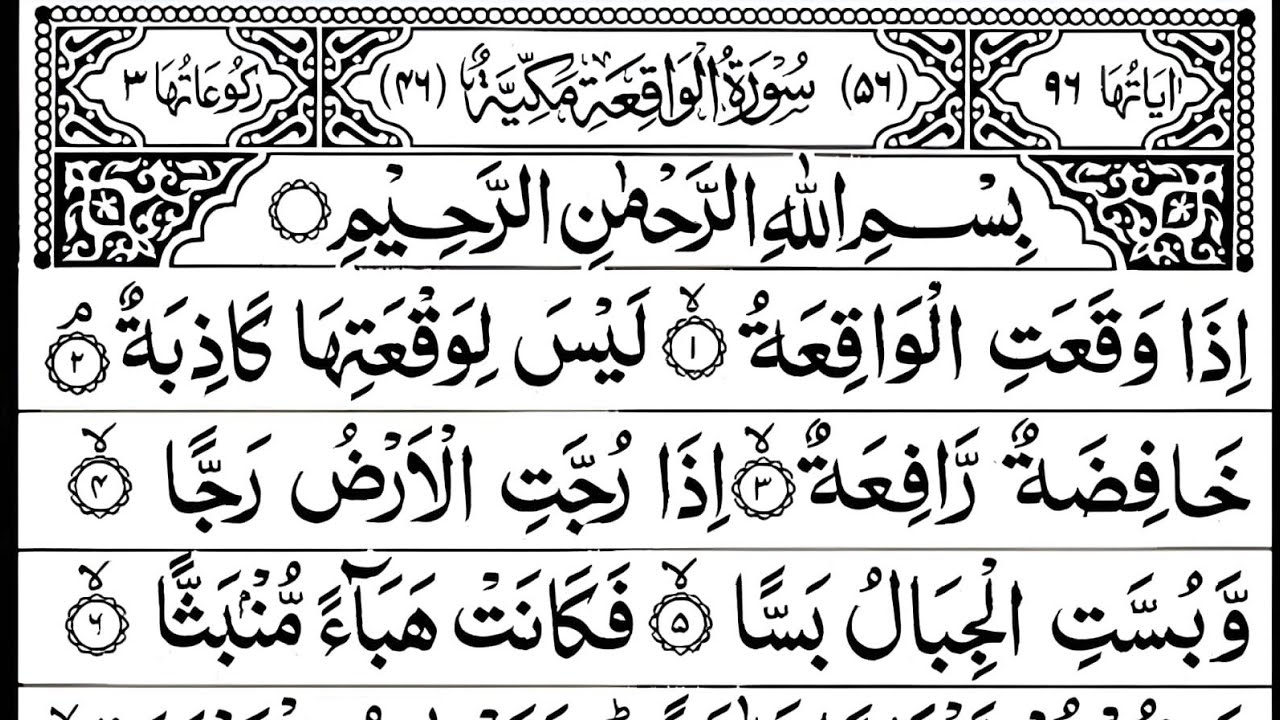 اٰيَاتُهَا ٩٦ (٥٦) سُوْرَةُ الْوَاقِعَةِ مَكِّيَّةٌ (٤٦) رُكُوْعَاتُهَا ٣
بِسْمِ اللّٰهِ الرَّحْمٰنِ الرَّحِيْمِ
اِذَا وَقَعَتِ الْوَاقِعَةُ ۙ ١ لَيْسَ لِوَقْعَتِهَا كَاذِبَةٌ ۘ ٢
خَافِضَةٌ رَّافِعَةٌ ۙ ٣ اِذَا رُجَّتِ الْاَرْضُ رَجًّا ۙ ۴
وَّبُسَّتِ الْجِبَالُ بَسًّا ۙ ۵ فَكَانَتْ هَبَآءً مُّنْۢبَثًّا ۙ ۶